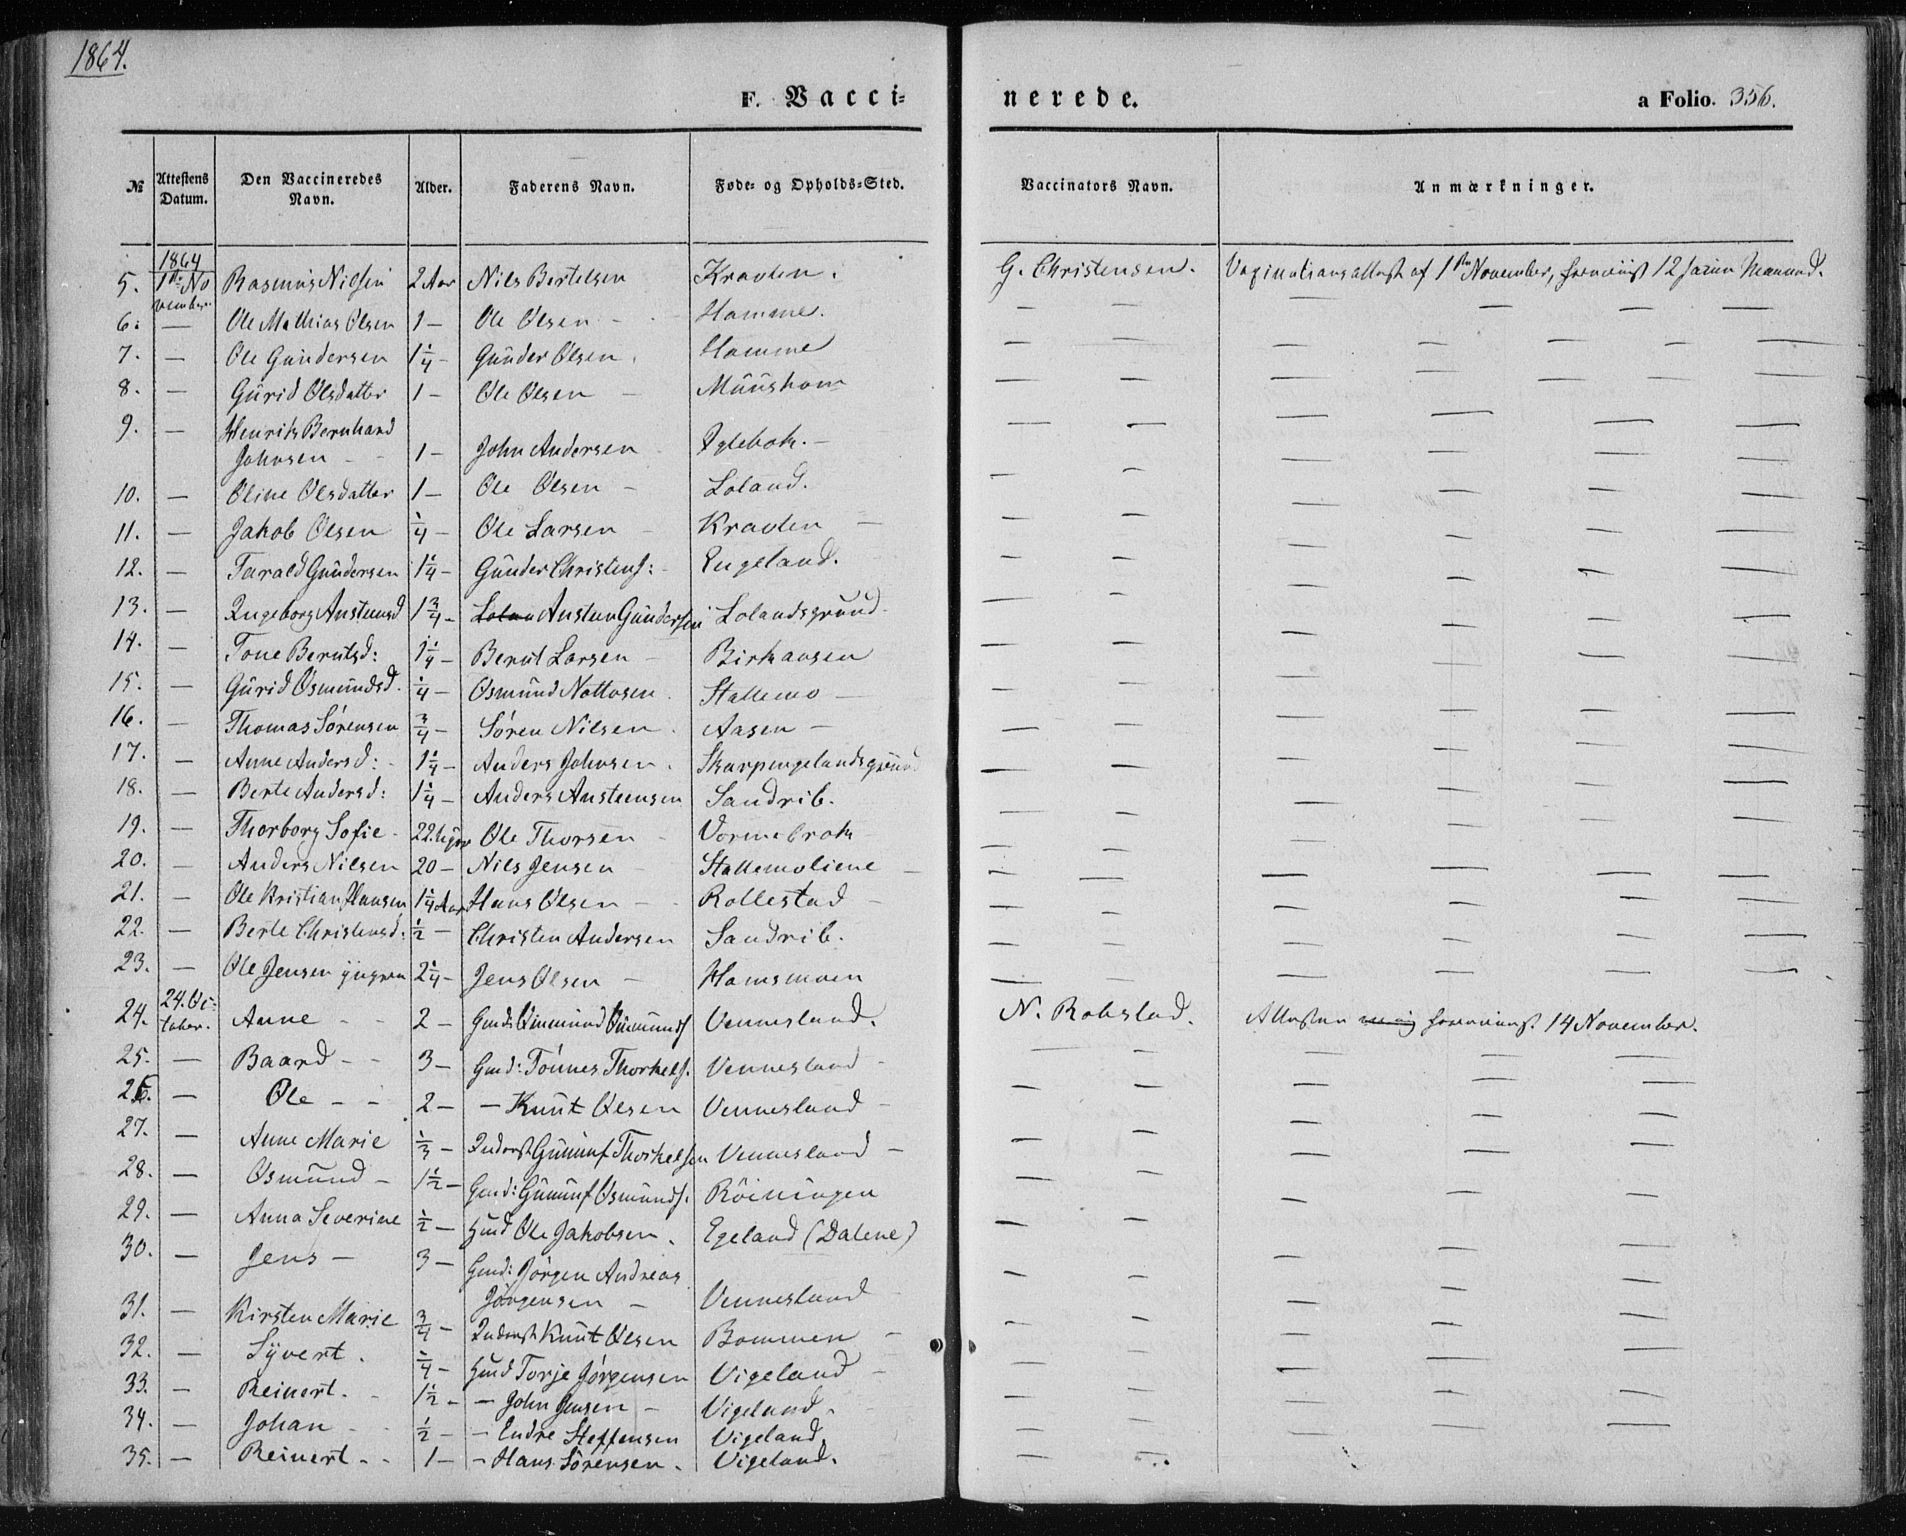 1864.
F. Vacci=
nerede.
a Folio. 356.
№ Attestens Datum. Den Vaccineredes Navn. Alder. Faderens Navn. Føde- og Opholds-Sted. Vaccinators Navn. Anmærkninger.
1864
5. 1ste No Rasmus Nilsen 2 Aar Nils Bertelsen Kravlen. G. Christensen. af 1ste November, 12
vember.
6. — Ole Mathias Olsen 1 — Ole Olsen — Homme. — — — — — —
7. — Ole Gundersen 1 1/4 — Gunder Olsen. Homme — — — — — —
8. — Gurid Olsdatter 1 — Ole Olsen — Muushom — — — — — —
9. — Henrik Bernhard
Johnsen — 1 — John Andersen Iglebæk. — — — — — — —
10. — Oline Olsdatter 1 — Ole Olsen — Loland. — — — — — —
11. — Jakob Olsen 1/4 — Ole Larsen — Kravlen — — — — — — —
12. — Tarald Gundersen 1 1/4 — Gunder Christens: — Engeland. — — — — — —
13. — Ingeborg Austensd 1 3/4 — Austen Gundersen Lolandsgrund. — — — — — —
14. — Tone Berntsd: 1 1/4 — Bernt Larsen — Birkaasen — — — — — —
15. — Gurid Osmundsd. 1/4 — Osmund Stallemo — — — — — — —
16. — Thomas Sørensen 3/4 — Søren Nilsen. Aasen — — — — — — —
17. — Anne Andersd: 1 1/4 — Anders Johnsen. Skarpengelandsgrund — — — — — —
18. — Berte Andersd: 1 1/4 — Anders Austensen Sandrib. — — — — — —
19. — Thorborg Sofie — 22 Uger Ole Thorsen — — — — — — —
20. — Anders Nilsen 20 — Nils Jensen — Stallemoliene — — — — — — —
21. — Ole Kristian Hansen 1 1/4 Aar Hans Olsen — Rollestad — — — — — — —
22. — Berte Christensd: 1/2 — Christen Andersen Sandrib. — — — — — —
23. — Ole Jensen yngren 2 1/4 — Jens Olsen — Homsmoen — — — — — —
24. 24. Oc- Anne — 2 — Gmd: Vennesland. N. Robstad. Attesten 14 November.
tober.
25. — Baard — 3 — Gmd: Tönnes Thorkels. Vennesland — — — — — —
26. — Ole — 2 — — Knut Olsen Vennesland — — — — — —
27. — Anne Marie 1/3 — Inderst Gunuf Thorkelsen Vennesland — — — — — —
28. — Osmund — 1 1/2 — Gmd: Gunuf Osmunds. Röiningen — — — — —
29. — Anna Severine 1/2 — Hmd Ole Jakobsen. Egeland (Dalene) — — — — —
30. — Jens — 3 — Gmd: Jørgen Andreas
Jørgensen — Vennesland — — — — —
31. — Kirsten Marie 3/4 — Inderst Knut Olsen Bommen — — — — — —
32. — Syvert. 1/4 — Hmd Torje Jørgensen Vigeland — — — — — —
33. — Reinert. 1 1/2 — — John Jensen — Vigeland. — — — — —
34. — Johan 1/2 — — Endre Steffensen Vigeland. — — — — —
35. — Reinert — 1 — — Hans Sørensen. Vigeland. — —